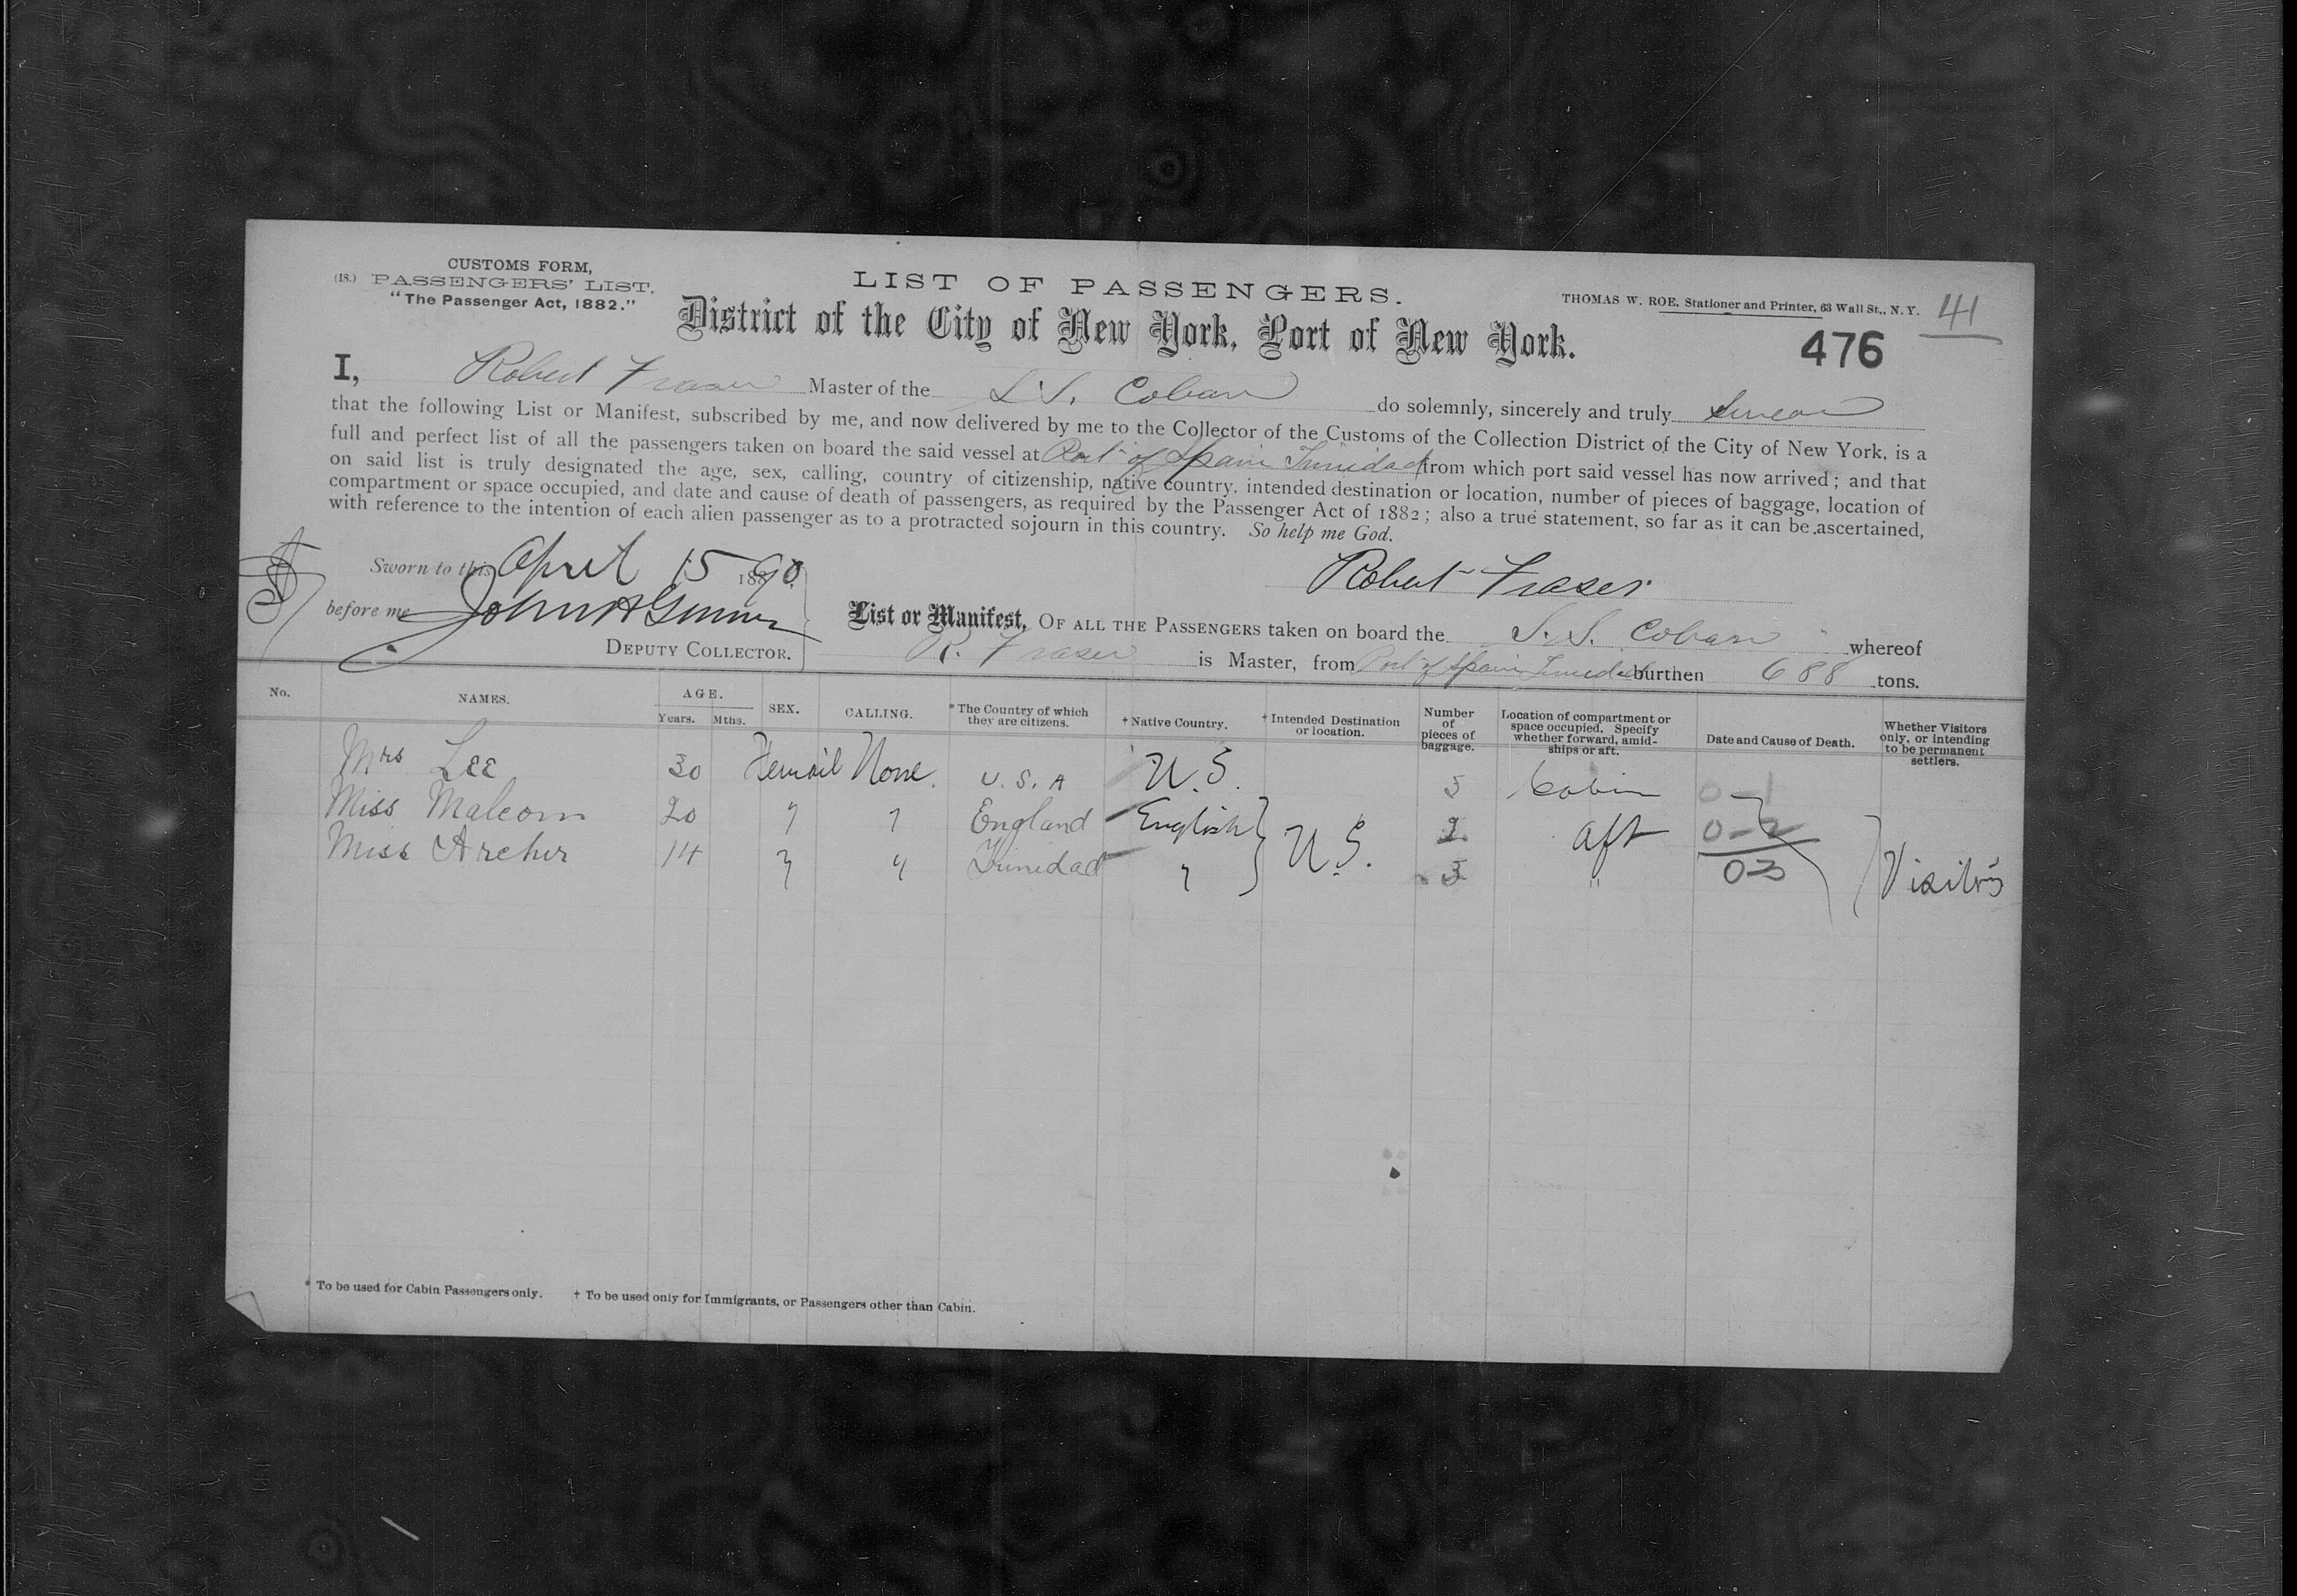 CUSTOMS FORM,
(18.) PASSENGERS' LIST.
"The Passenger Act, 1882."
LIST OF PASSENGERS.
THOMAS W. ROE, Stationer and Printer, 63 Wall St., N. Y. 41
District of the City of New York, Port of New York.
476
I, Robert Fraser Master of the S.S. Coban do solemnly, sincerely and truly Swear
that the following List or Manifest, subscribed by me, and now delivered by me to the Collector of the Customs of the Collection District of the City of New York, is a
full and perfect list of all the passengers taken on board the said vessel at Port of Spain Trinidad from which port said vessel has now arrived; and that
on said list is truly designated the age, sex, calling, country of citizenship, native country, intended destination or location, number of pieces of baggage, location of
compartment or space occupied, and date and cause of death of passengers, as required by the Passenger Act of 1882; also a true statement, so far as it can be ascertained,
with reference to the intention of each alien passenger as to a protracted sojourn in this country. So help me God.
Sworn to this April 15 1890
Robert Fraser
before me John A
DEPUTY COLLECTOR.
List or Manifest, OF ALL THE PASSENGERS taken on board the S.S. Coban whereof
R. Fraser is Master, from Port of Spain Trinidad burthen 688 tons.
No. NAMES. AGE. Years. Mths. SEX. CALLING. * The Country of which they are citizens. † Native Country. † Intended Destination or location. Number of pieces of baggage. Location of compartment or space occupied. Specify whether forward, amidships or aft. Date and Cause of Death. Whether Visitors only, or intending to be permanent settlers.
Mrs Lee 30 Femail None. U.S.A U.S. 5 Cabin 0-1
Miss Malcom 20 " " England English U.S. 2 aft 0-2
Miss Archer 14 " " Trinidad " 3 " 03 Visitors
* To be used for Cabin Passengers only. † To be used only for Immigrants, or Passengers other than Cabin.